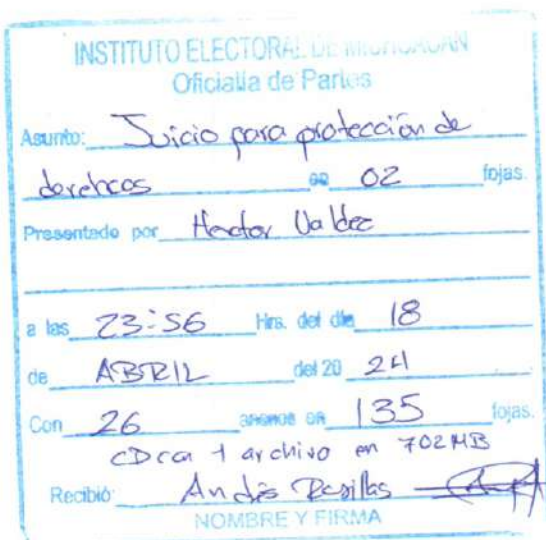 INSTITUTO ELECTORAL DE MICHOACÁN
Oficialía de Partes
Asunto: Juicio para protección de
derechos en 02 fojas.
Presentado por Hector Valdez
a las 23:56 Hrs. del día 18
de ABRIL del 20 24
Con 26 anexos en 135 fojas.
CD con 1 archivo en 702MB
Recibió: Andrés
NOMBRE Y FIRMA